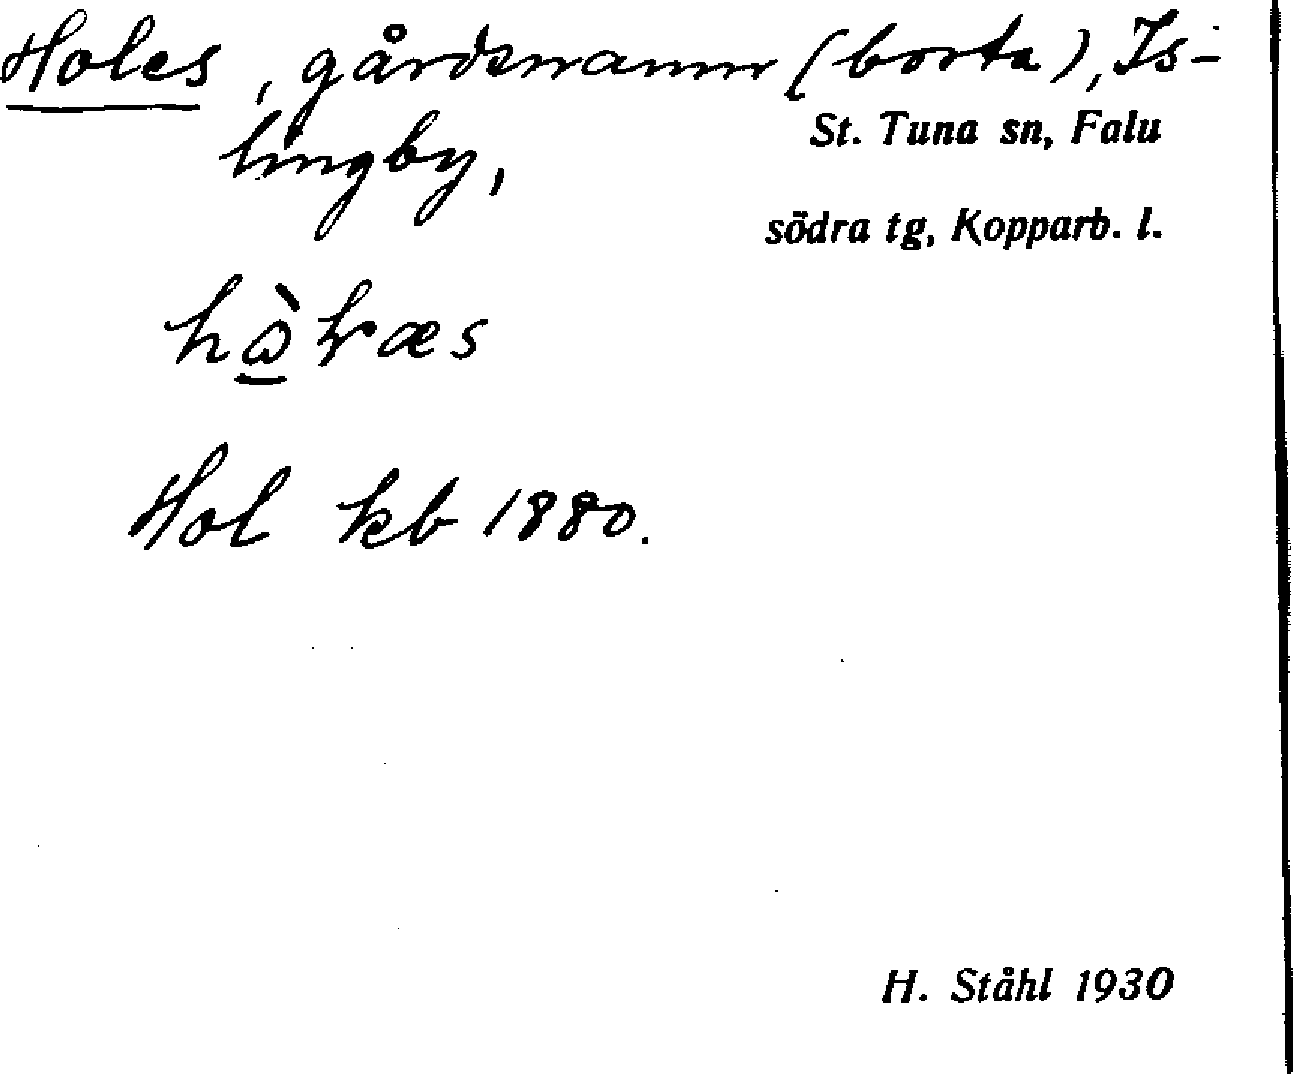 Holes, gårdsnamn (borta), Is-
lingby,
St. Tuna sn, Falu
södra tg, Kopparb. l.
Hol kb 1880.
H. Ståhl 1930